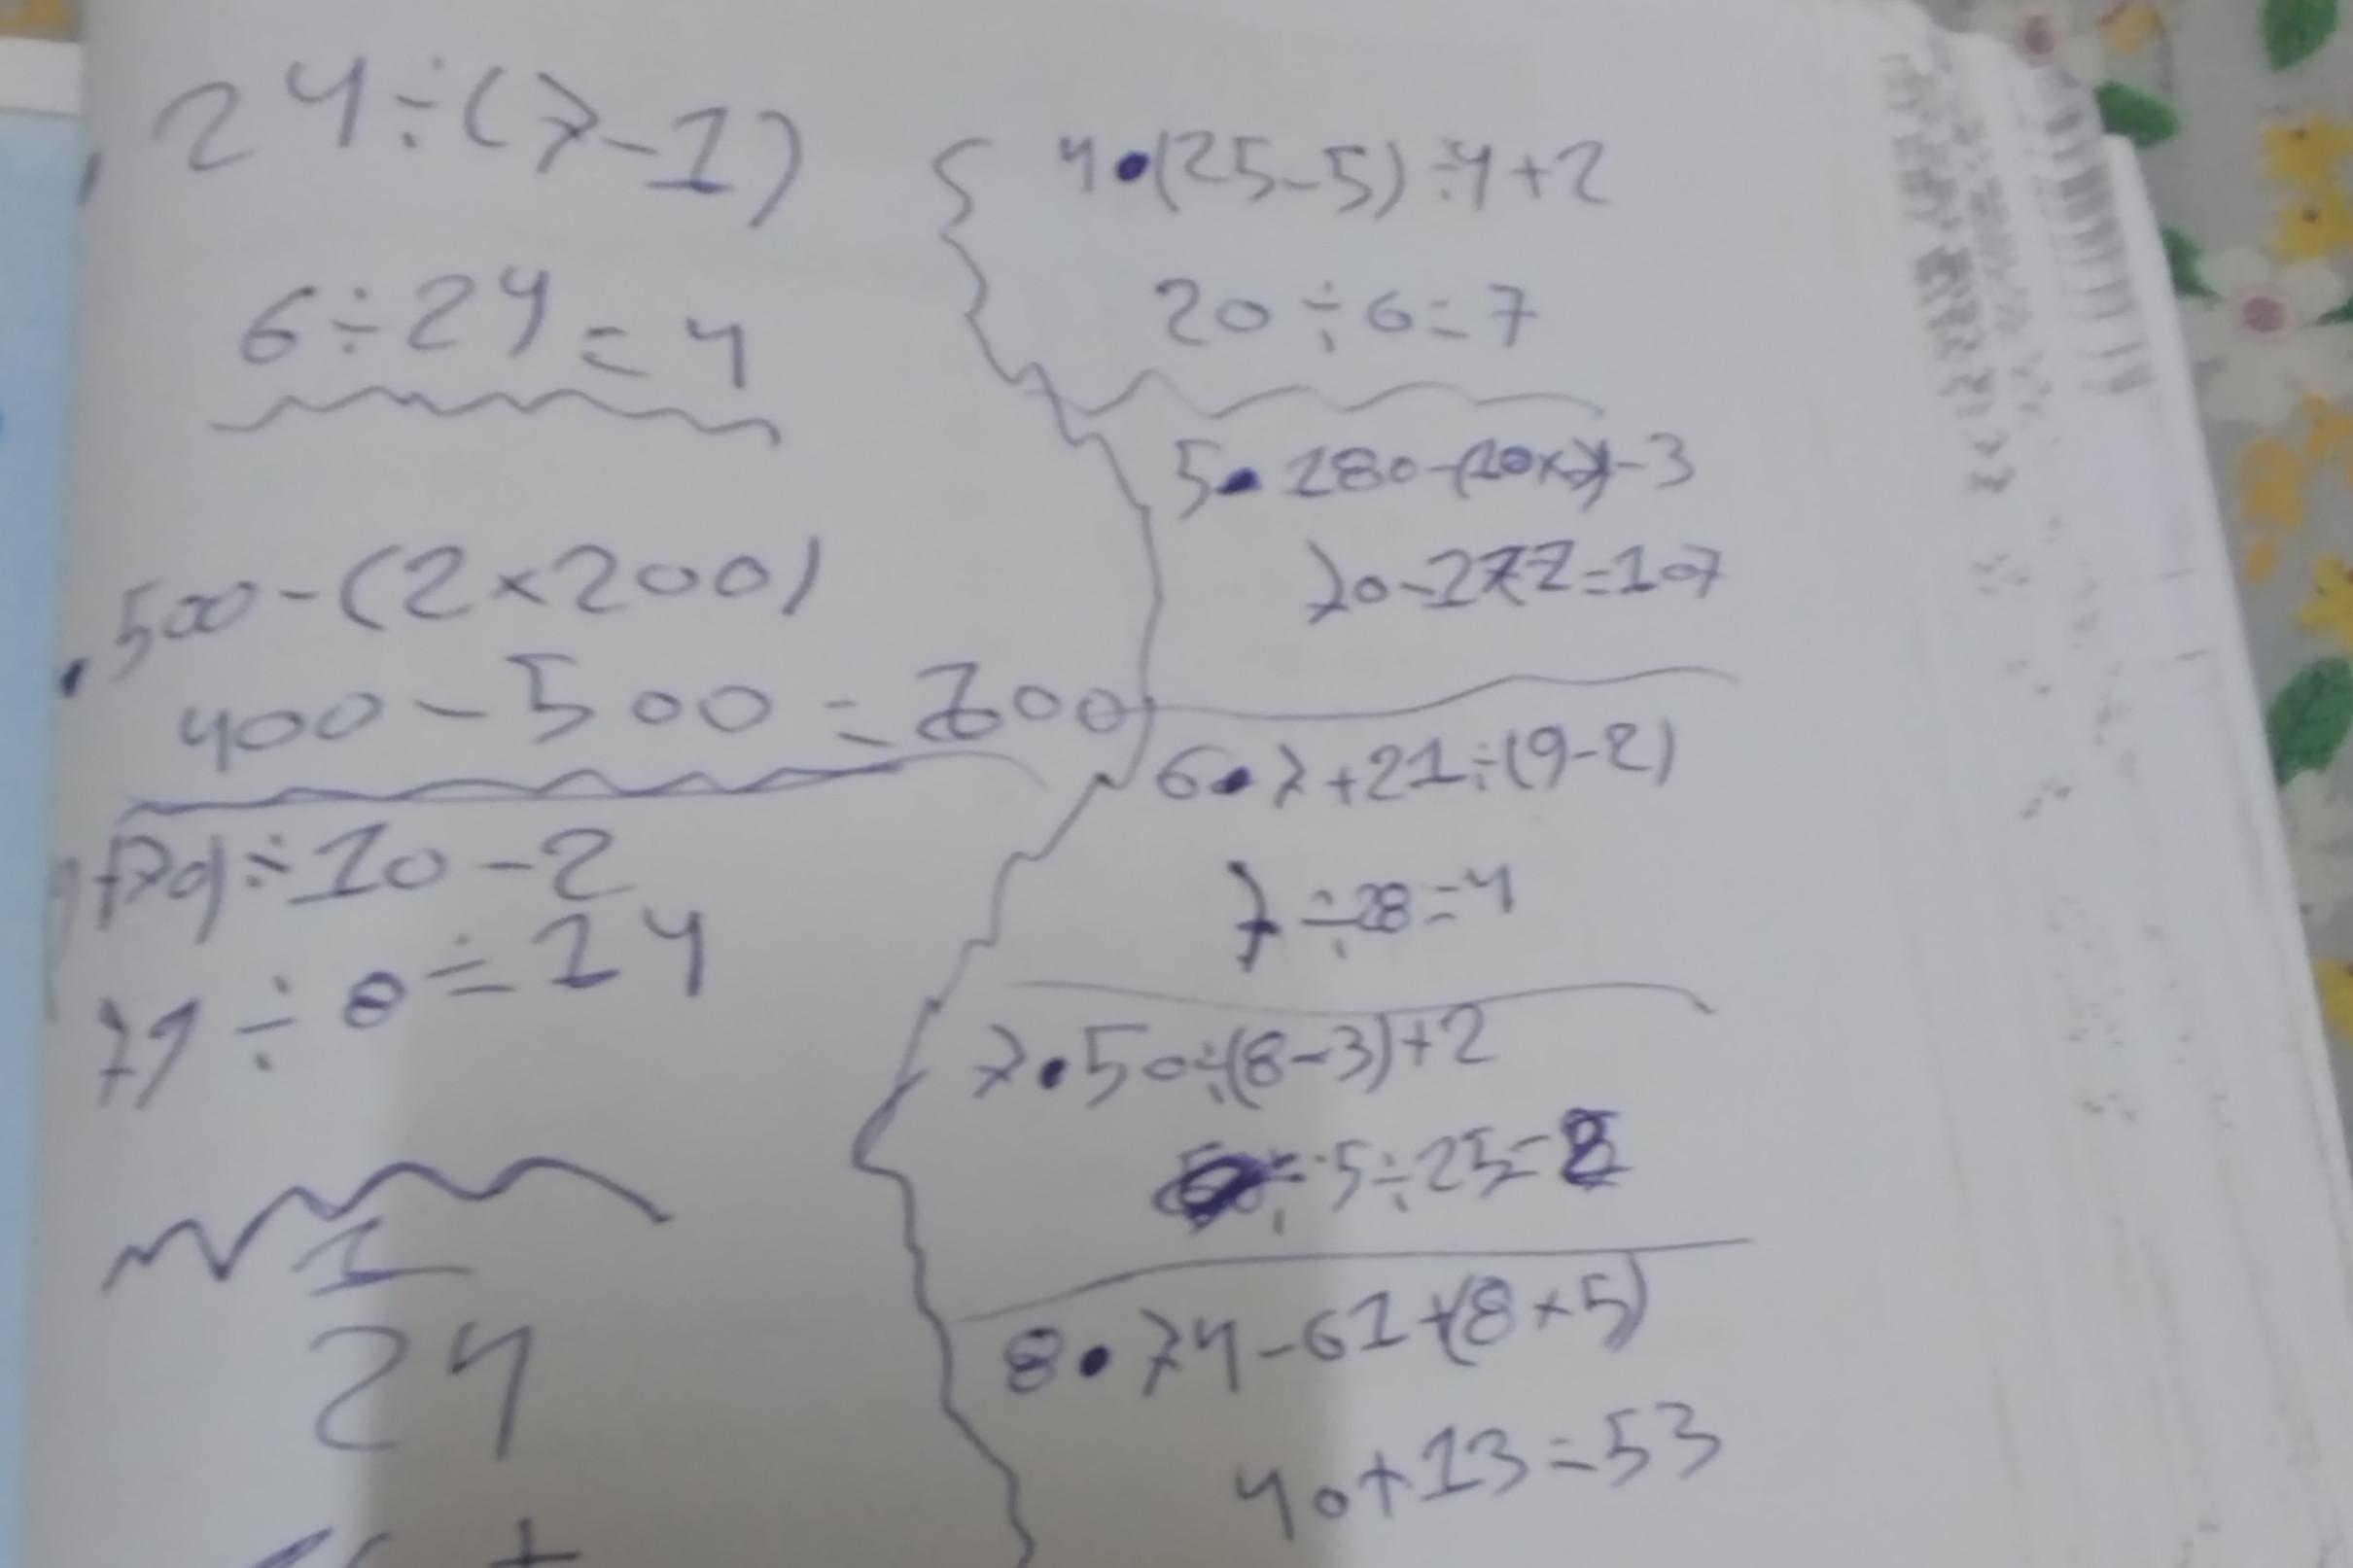 24÷(7-1)
6÷24=4
500-(2×200)
400-500=
÷10-2
÷8=14
1
24
4•(25-5)÷4+2
20÷6=7
5•180-(10×7)-3
70-177=107
6•7+21÷(9-2)
7÷28=4
7•50÷(8-3)+2
5÷25=
8•74-61+(8×5)
40+13=53